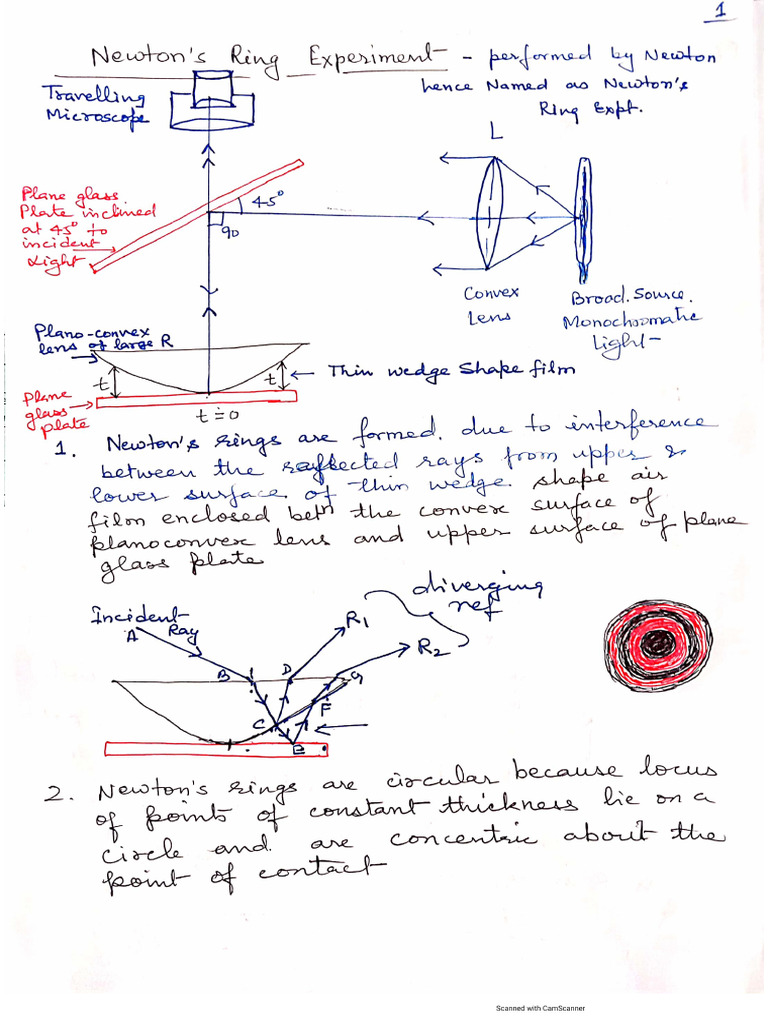 1
Newton's Ring Experiment - performed by Newton
hence Named as Newton's
Ring Expt.
Travelling
Microscope
L
Plane glass
Plate inclined
at 45° to
incident
Light
45°
90
Convex
Lens
Broad. Source.
Monochromatic
Light
Plano-convex
lens of large R
t
t
Thin wedge Shape film
Plane
glass
plate
t = 0
1. Newton's rings are formed. due to interference
between the reflected rays from upper &
lower surface of thin wedge. shape air
film enclosed betn the convex surface of
planoconvex lens and upper surface of plane
glass plate
Incident
Ray
A
R1
diverging
ref
R2
B
D
G
C
F
E
2. Newton's rings are circular because locus
of points of constant thickness lie on a
circle and are concentric about the
point of contact
Scanned with CamScanner